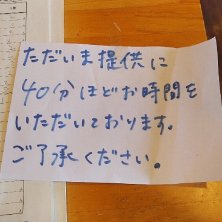 ただいま提供に
40分ほどお時間を
いただいております。
ご了承ください。